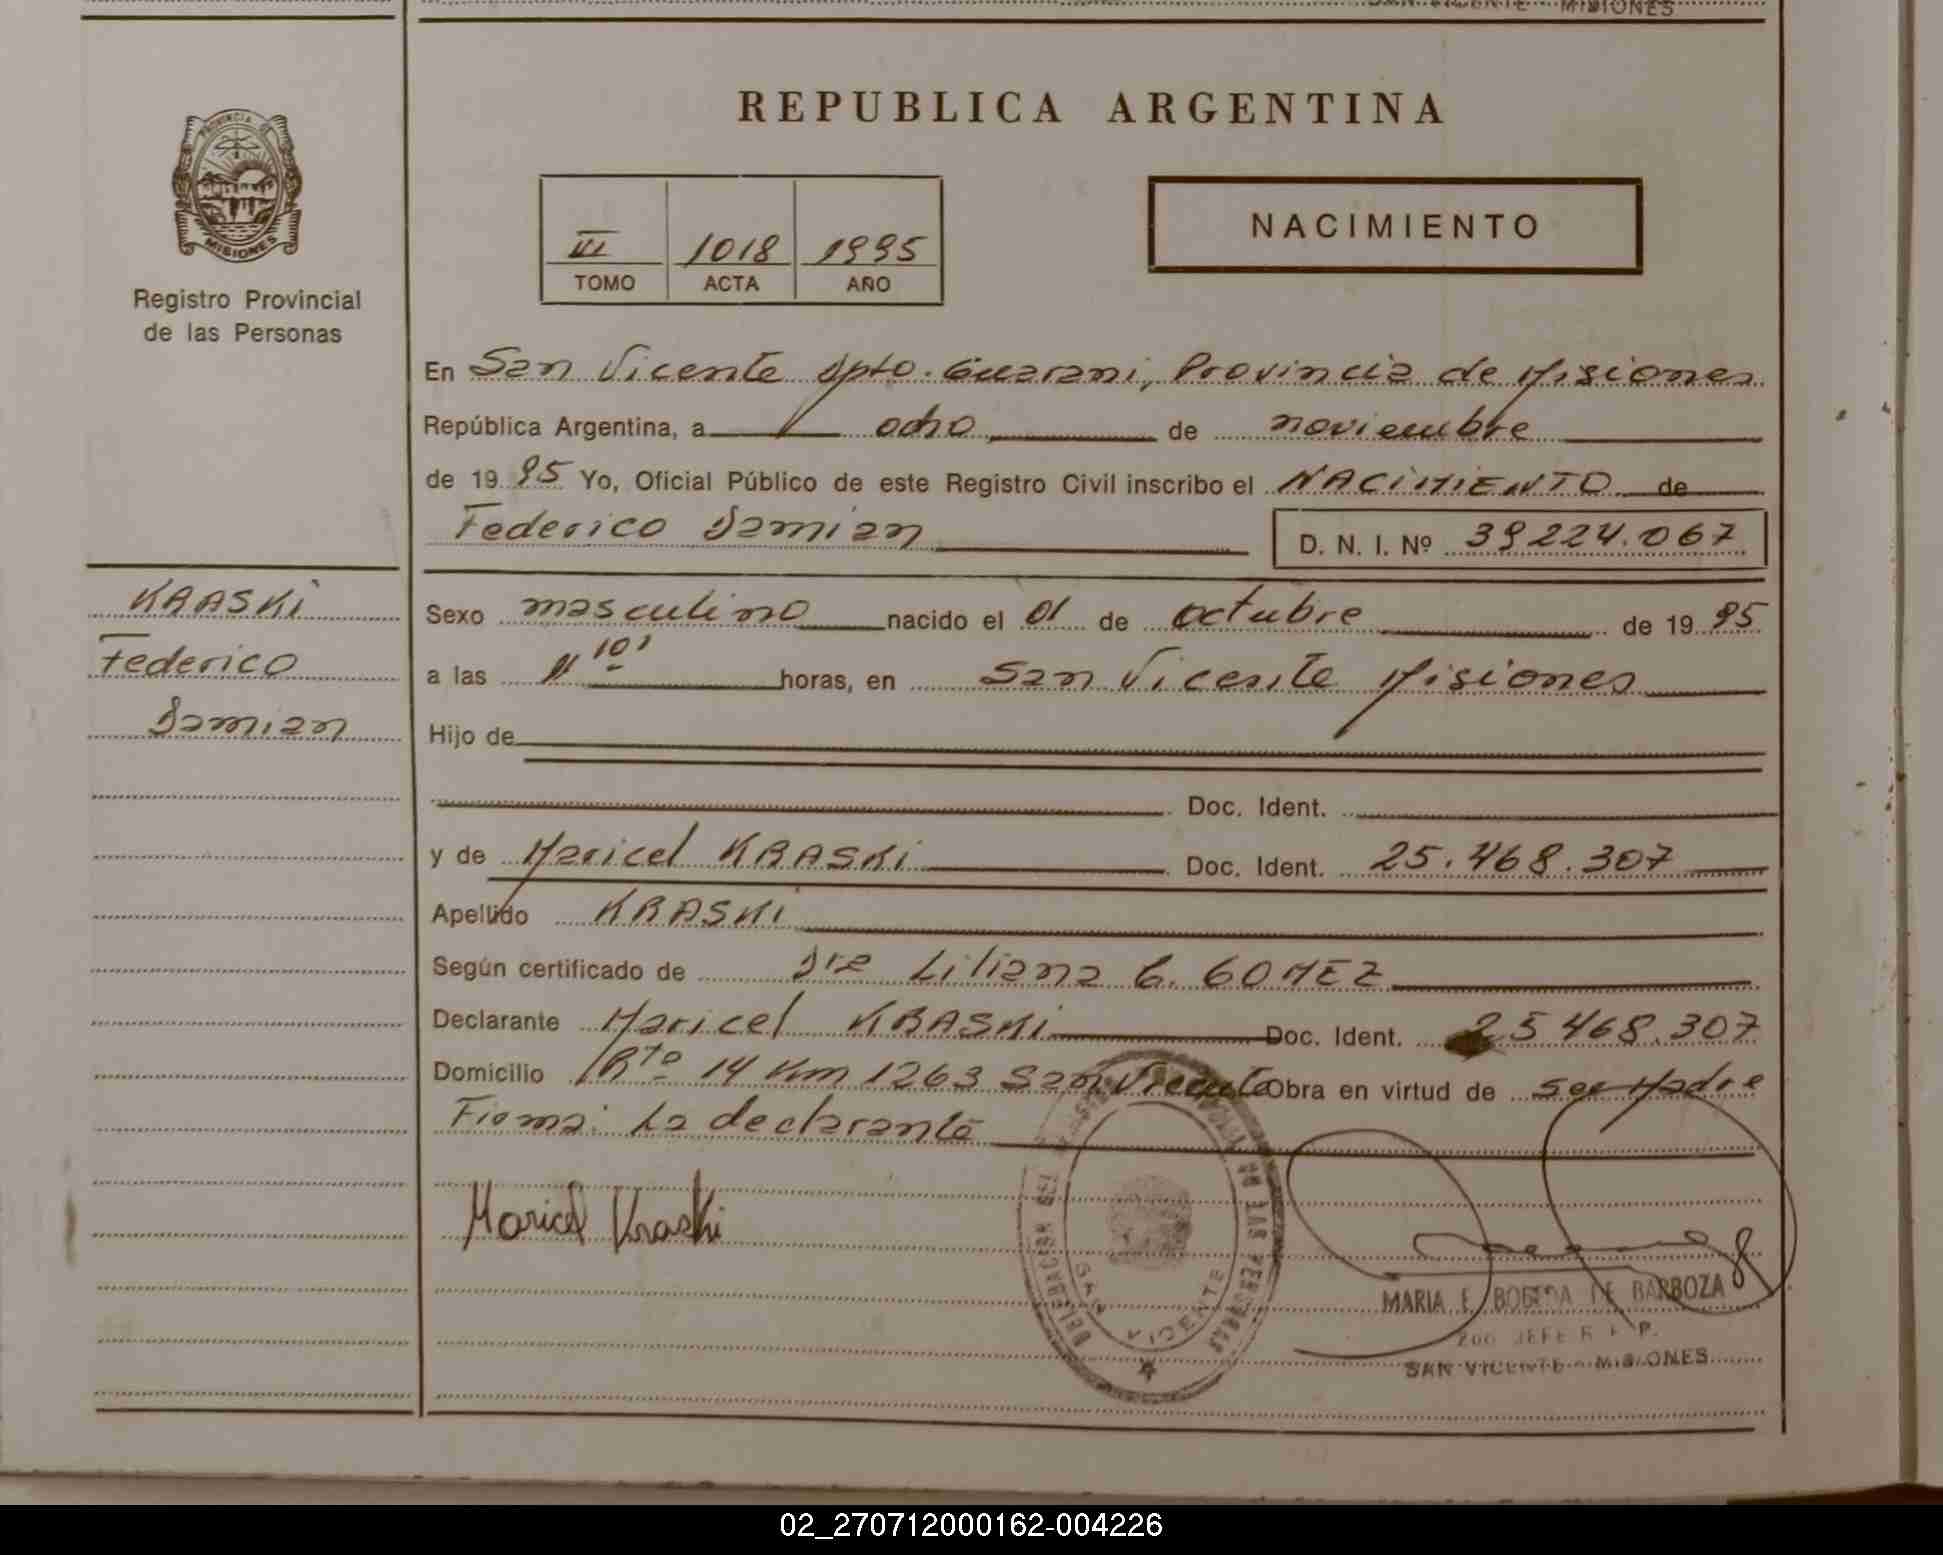 SAN VICENTE MISIONES
REPUBLICA ARGENTINA
PROVINCIA DE
MISIONES
Registro Provincial
de las Personas
VI 1018 1995
TOMO ACTA AÑO
NACIMIENTO
En San Vicente Dpto. Guarani, Provincia de Misiones
República Argentina, a ocho de noviembre
de 1995 Yo, Oficial Público de este Registro Civil inscribo el NACIMIENTO de
Federico Damian D. N. I. Nº 39224.067
KRASKI
Federico
Damian
Sexo masculino nacido el 01 de octubre de 1995
a las 11 10' horas, en San Vicente Misiones
Hijo de
Doc. Ident.
y de Maricel KRASKI Doc. Ident. 25.468.307
Apellido KRASKI
Según certificado de Dra Liliana G. GOMEZ
Declarante Maricel KRASKI Doc. Ident. 25468.307
Domicilio Rta 14 Km 1263 San Vicente Obra en virtud de ser Madre
Firma: La declarante
Maricel Kraski
SAN VICENTE
MARIA E. DE BARBOZA
JEFE R. P.
SAN VICENTE - MISIONES
02_270712000162-004226